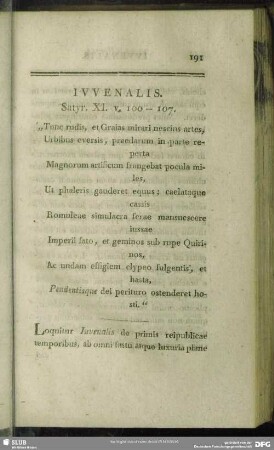 191
IVVENALIS.
Satyr. XI. v. 100 - 107.
„Tunc rudis, et Graias mirari nescius artes,
Urbibus eversis, praedarum in parte re-
perta
Magnorum artificum frangebat pocula mi-
les,
Ut phaleris gauderet equus; caelataque
cassis
Romuleae simulacra ferae mansuescere
iussae
Imperii fato, et geminos sub rupe Quiri-
nos,
Ac nudam effigiem clypeo fulgentis, et
hasta,
Pendentisque dei perituro ostenderet ho-
sti.“
Loquitur Iuvenalis de primis reipublicae
temporibus, ab omni fastu atque luxuria plane
SLUB
DFG